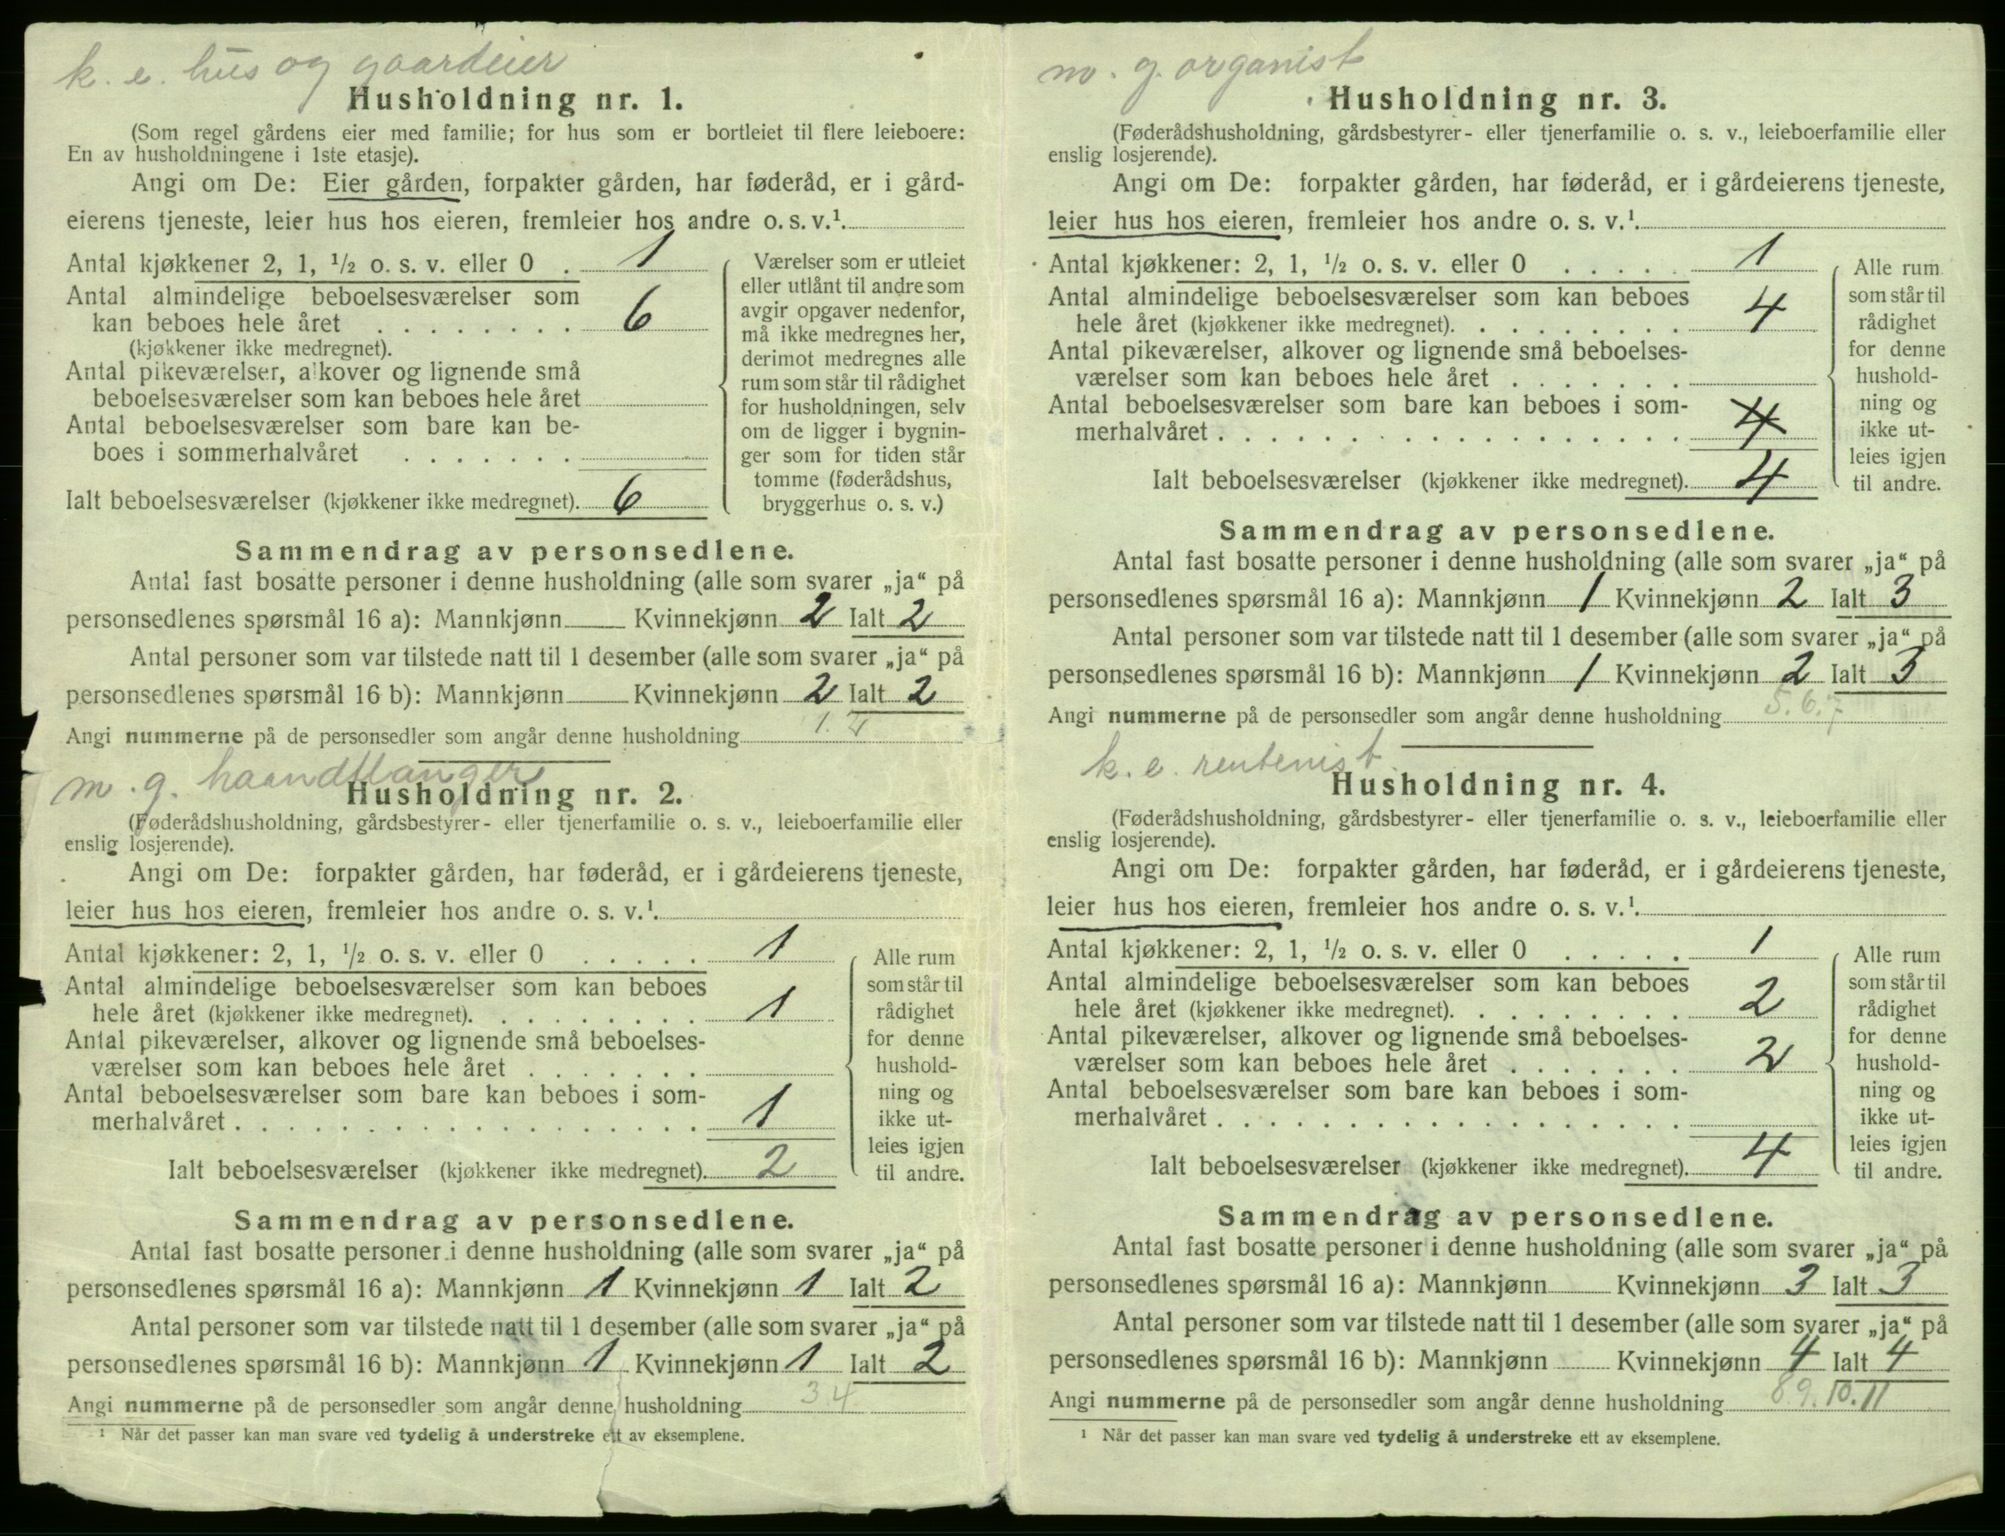 k. e. hus og gaardeier
Husholdning nr. 1.
(Som regel gårdens eier med familie; for hus som er bortleiet til flere leieboere:
En av husholdningene i 1ste etasje).
Angi om De: Eier gården, forpakter gården, har føderåd, er i gård-
eierens tjeneste, leier hus hos eieren, fremleier hos andre o. s. v.¹.
Antal kjøkkener 2, 1, ½ o. s. v. eller 0 . 1
Antal almindelige beboelsesværelser som
kan beboes hele året . . . . . . . . 6
(kjøkkener ikke medregnet).
Antal pikeværelser, alkover og lignende små
beboelsesværelser som kan beboes hele året
Antal beboelsesværelser som bare kan be-
boes i sommerhalvåret . . . . . . .
Ialt beboelsesværelser (kjøkkener ikke medregnet). 6
Værelser som er utleiet
eller utlånt til andre som
avgir opgaver nedenfor,
må ikke medregnes her,
derimot medregnes alle
rum som står til rådighet
for husholdningen, selv
om de ligger i bygnin-
ger som for tiden står
tomme (føderådshus,
bryggerhus o. s. v.)
Sammendrag av personsedlene.
Antal fast bosatte personer i denne husholdning (alle som svarer „ja“ på
personsedlenes spørsmål 16 a): Mannkjønn Kvinnekjønn 2 Ialt 2
Antal personer som var tilstede natt til 1 desember (alle som svarer „ja“ på
personsedlenes spørsmål 16 b): Mannkjønn Kvinnekjønn 2 Ialt 2
Angi nummerne på de personsedler som angår denne husholdning 1. 2
m. g. haandtlanger
Husholdning nr. 2.
(Føderådshusholdning, gårdsbestyrer- eller tjenerfamilie o. s. v., leieboerfamilie eller
enslig losjerende).
Angi om De: forpakter gården, har føderåd, er i gårdeierens tjeneste,
leier hus hos eieren, fremleier hos andre o. s. v.¹.
Antal kjøkkener: 2, 1, ½ o. s. v. eller 0 . . . . . 1
Antal almindelige beboelsesværelser som kan beboes
hele året (kjøkkener ikke medregnet). . . . . . . . . 1
Antal pikeværelser, alkover og lignende små beboelses-
værelser som kan beboes hele året . . . . . . .
Antal beboelsesværelser som bare kan beboes i som-
merhalvåret . . . . . . . . . . . . . . . . . . 1
Ialt beboelsesværelser (kjøkkener ikke medregnet). 2
Alle rum
som står til
rådighet
for denne
hushold-
ning og
ikke ut-
leies igjen
til andre.
Sammendrag av personsedlene.
Antal fast bosatte personer i denne husholdning (alle som svarer „ja“ på
personsedlenes spørsmål 16 a): Mannkjønn 1 Kvinnekjønn 1 Ialt 2
Antal personer som var tilstede natt til 1 desember (alle som svarer „ja“ på
personsedlenes spørsmål 16 b): Mannkjønn 1 Kvinnekjønn 1 Ialt 2
Angi nummerne på de personsedler som angår denne husholdning 3. 4
¹ Når det passer kan man svare ved tydelig å understreke ett av eksemplene.
m. g. organist
Husholdning nr. 3.
(Føderådshusholdning, gårdsbestyrer- eller tjenerfamilie o. s. v., leieboerfamilie eller
enslig losjerende).
Angi om De: forpakter gården, har føderåd, er i gårdeierens tjeneste,
leier hus hos eieren, fremleier hos andre o. s. v.¹.
Antal kjøkkener: 2, 1, ½ o. s. v. eller 0 . . . . . 1
Antal almindelige beboelsesværelser som kan beboes
hele året (kjøkkener ikke medregnet). . . . . . . . . 4
Antal pikeværelser, alkover og lignende små beboelses-
værelser som kan beboes hele året . . . . . . .
Antal beboelsesværelser som bare kan beboes i som-
merhalvåret . . . . . . . . . . . . . . . . . . 4
Ialt beboelsesværelser (kjøkkener ikke medregnet). 4
Alle rum
som står til
rådighet
for denne
hushold-
ning og
ikke ut-
leies igjen
til andre.
Sammendrag av personsedlene.
Antal fast bosatte personer i denne husholdning (alle som svarer „ja“ på
personsedlenes spørsmål 16 a): Mannkjønn 1 Kvinnekjønn 2 Ialt 3
Antal personer som var tilstede natt til 1 desember (alle som svarer „ja“ på
personsedlenes spørsmål 16 b): Mannkjønn 1 Kvinnekjønn 2 Ialt 3
Angi nummerne på de personsedler som angår denne husholdning 5. 6. 7
k. e. rentenist
Husholdning nr. 4.
(Føderådshusholdning, gårdsbestyrer- eller tjenerfamilie o. s. v., leieboerfamilie eller
enslig losjerende).
Angi om De: forpakter gården, har føderåd, er i gårdeierens tjeneste,
leier hus hos eieren, fremleier hos andre o. s. v.¹.
Antal kjøkkener: 2, 1, ½ o. s. v. eller 0 . . . . . 1
Antal almindelige beboelsesværelser som kan beboes
hele året (kjøkkener ikke medregnet). . . . . . . . . 2
Antal pikeværelser, alkover og lignende små beboelses-
værelser som kan beboes hele året . . . . . . . 2
Antal beboelsesværelser som bare kan beboes i som-
merhalvåret . . . . . . . . . . . . . . . . . .
Ialt beboelsesværelser (kjøkkener ikke medregnet). 4
Alle rum
som står til
rådighet
for denne
hushold-
ning og
ikke ut-
leies igjen
til andre.
Sammendrag av personsedlene.
Antal fast bosatte personer i denne husholdning (alle som svarer „ja“ på
personsedlenes spørsmål 16 a): Mannkjønn Kvinnekjønn 3 Ialt 3
Antal personer som var tilstede natt til 1 desember (alle som svarer „ja“ på
personsedlenes spørsmål 16 b): Mannkjønn Kvinnekjønn 4 Ialt 4
Angi nummerne på de personsedler som angår denne husholdning 8. 9. 10. 11
¹ Når det passer kan man svare ved tydelig å understreke ett av eksemplene.